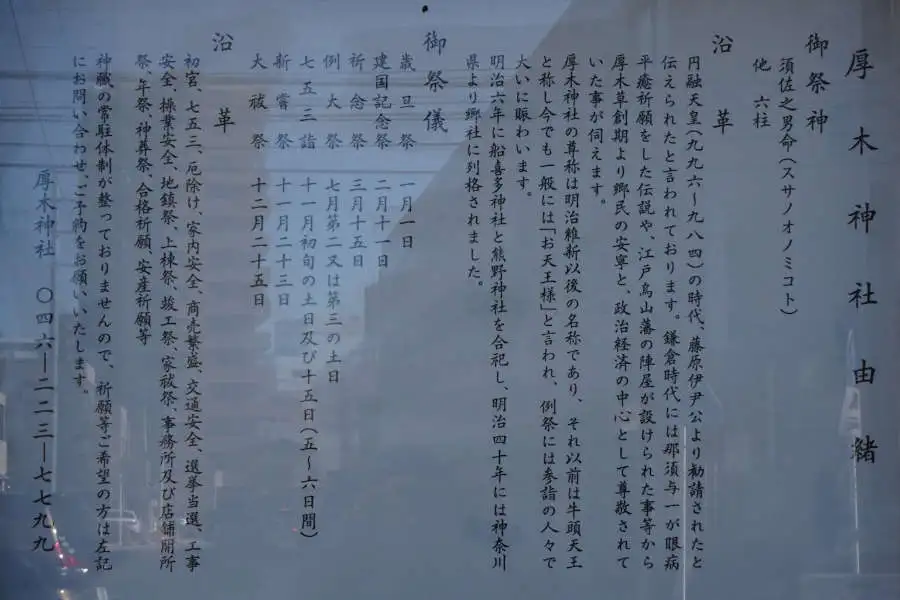 厚木神社由緒
御祭神
須佐之男命(スサノオノミコト)
他 六柱
沿革
円融天皇(九九六～九八四)の時代、藤原伊尹公より勧請されたと
伝えられたと言われております。鎌倉時代には那須与一が眼病
平癒祈願をした伝説や、江戸烏山藩の陣屋が設けられた事等から
厚木草創期より郷民の安寧と、政治経済の中心として尊敬されて
いた事が伺えます。
厚木神社の尊称は明治維新以後の名称であり、それ以前は牛頭天王
と称し今でも一般には「お天王様」と言われ、例祭には参詣の人々で
大いに賑わいます。
明治六年に船喜多神社と熊野神社を合祀し、明治四十年には神奈川
県より郷社に列格されました。
御祭儀
歳旦祭 一月一日
建国記念祭 二月十一日
祈念祭 三月十五日
例大祭 七月第二又は第三の土日
七五三詣 十一月初旬の土日及び十五日(五～六日間)
新嘗祭 十一月二十三日
大祓祭 十二月二十五日
沿革
初宮、七五三、厄除け、家内安全、商売繁盛、交通安全、選挙当選、工事
安全、操業安全、地鎮祭、上棟祭、竣工祭、家祓祭、事務所及び店舗開所
祭、年祭、神葬祭、合格祈願、安産祈願等
神職の常駐体制が整っておりませんので、祈願等ご希望の方は左記
にお問い合わせ、ご予約をお願いいたします。
厚木神社 〇四六ー二二三ー七七九九